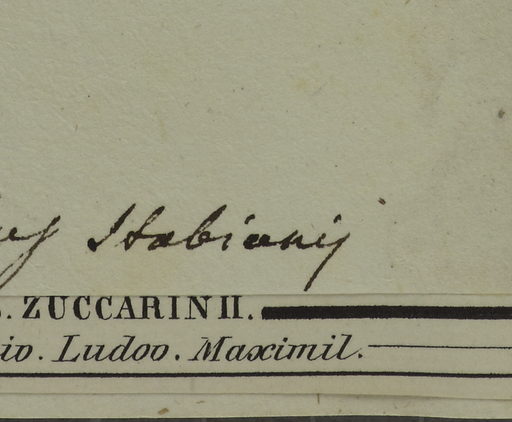 Stabianis
. ZUCCARINII.
io. Ludov. Maximil.